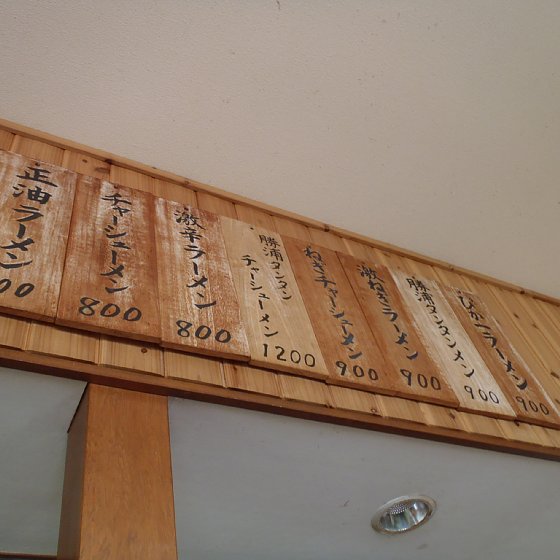 正油ラーメン
00
チャーシューメン
800
激辛ラーメン
800
勝浦タンタン
チャーシューメン
1200
ねぎチャーシューメン
900
激ねぎラーメン
900
勝浦タンタンメン
900
ひかつラーメン
900